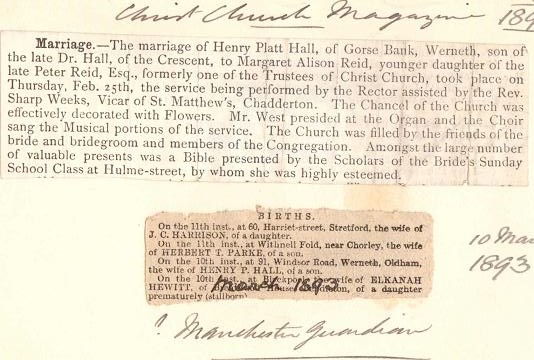 Christ Church Magazine 189
Marriage.—The marriage of Henry Platt Hall, of Gorse Bank, Werneth, son of
the late Dr. Hall, of the Crescent, to Margaret Alison Reid, younger daughter of the
late Peter Reid, Esq., formerly one of the Trustees of Christ Church, took place on
Thursday, Feb. 25th, the service being performed by the Rector assisted by the Rev.
Sharp Weeks, Vicar of St. Matthew's, Chadderton. The Chancel of the Church was
effectively decorated with Flowers. Mr. West presided at the Organ and the Choir
sang the Musical portions of the service. The Church was filled by the friends of the
bride and bridegroom and members of the Congregation. Amongst the large number
of valuable presents was a Bible presented by the Scholars of the Bride's Sunday
School Class at Hulme-street, by whom she was highly esteemed.
BIRTHS.
On the 11th inst., at 60, Harriet-street, Stretford, the wife of
J. C. HARRISON, of a daughter.
On the 11th inst., at Withnell Fold, near Chorley, the wife
of HERBERT T. PARKE, of a son.
On the 10th inst., at 91, Windsor Road, Werneth, Oldham,
the wife of HENRY P. HALL, of a son.
On the 10th inst., at Blackpool, the wife of ELKANAH
HEWITT, of House, of a daughter
prematurely (stillborn)
March 1893
10 Mar
1893
? Manchester Guardian